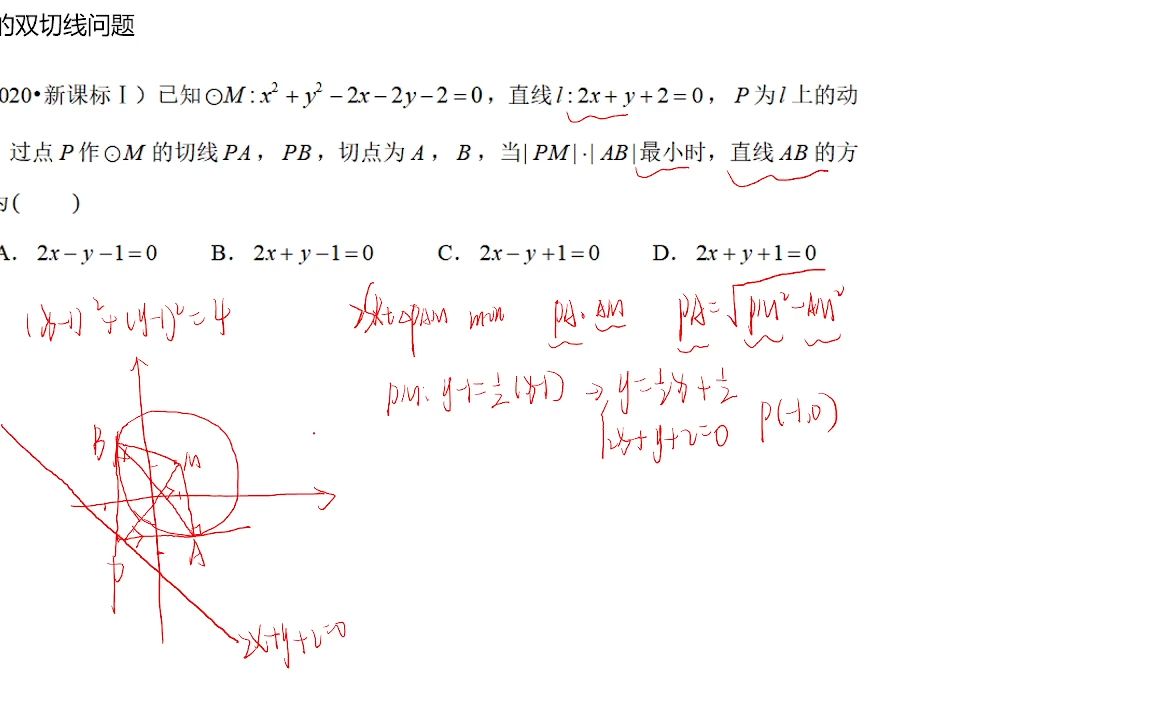 的双切线问题
020•新课标Ⅰ）已知⊙M:x²+y²−2x−2y−2=0，直线l:2x+y+2=0，P为l上的动
过点P作⊙M的切线PA，PB，切点为A，B，当|PM|·|AB|最小时，直线AB的方
( )
A. 2x−y−1=0 B. 2x+y−1=0 C. 2x−y+1=0 D. 2x+y+1=0
(x-1)²+(y-1)²=4
min PA·AM PA=√PM²-AM²
PM: y-1=½(x-1) ⇒ y=½x+½
2x+y+2=0 P(-1,0)
B
M
A
P
2x+y+2=0